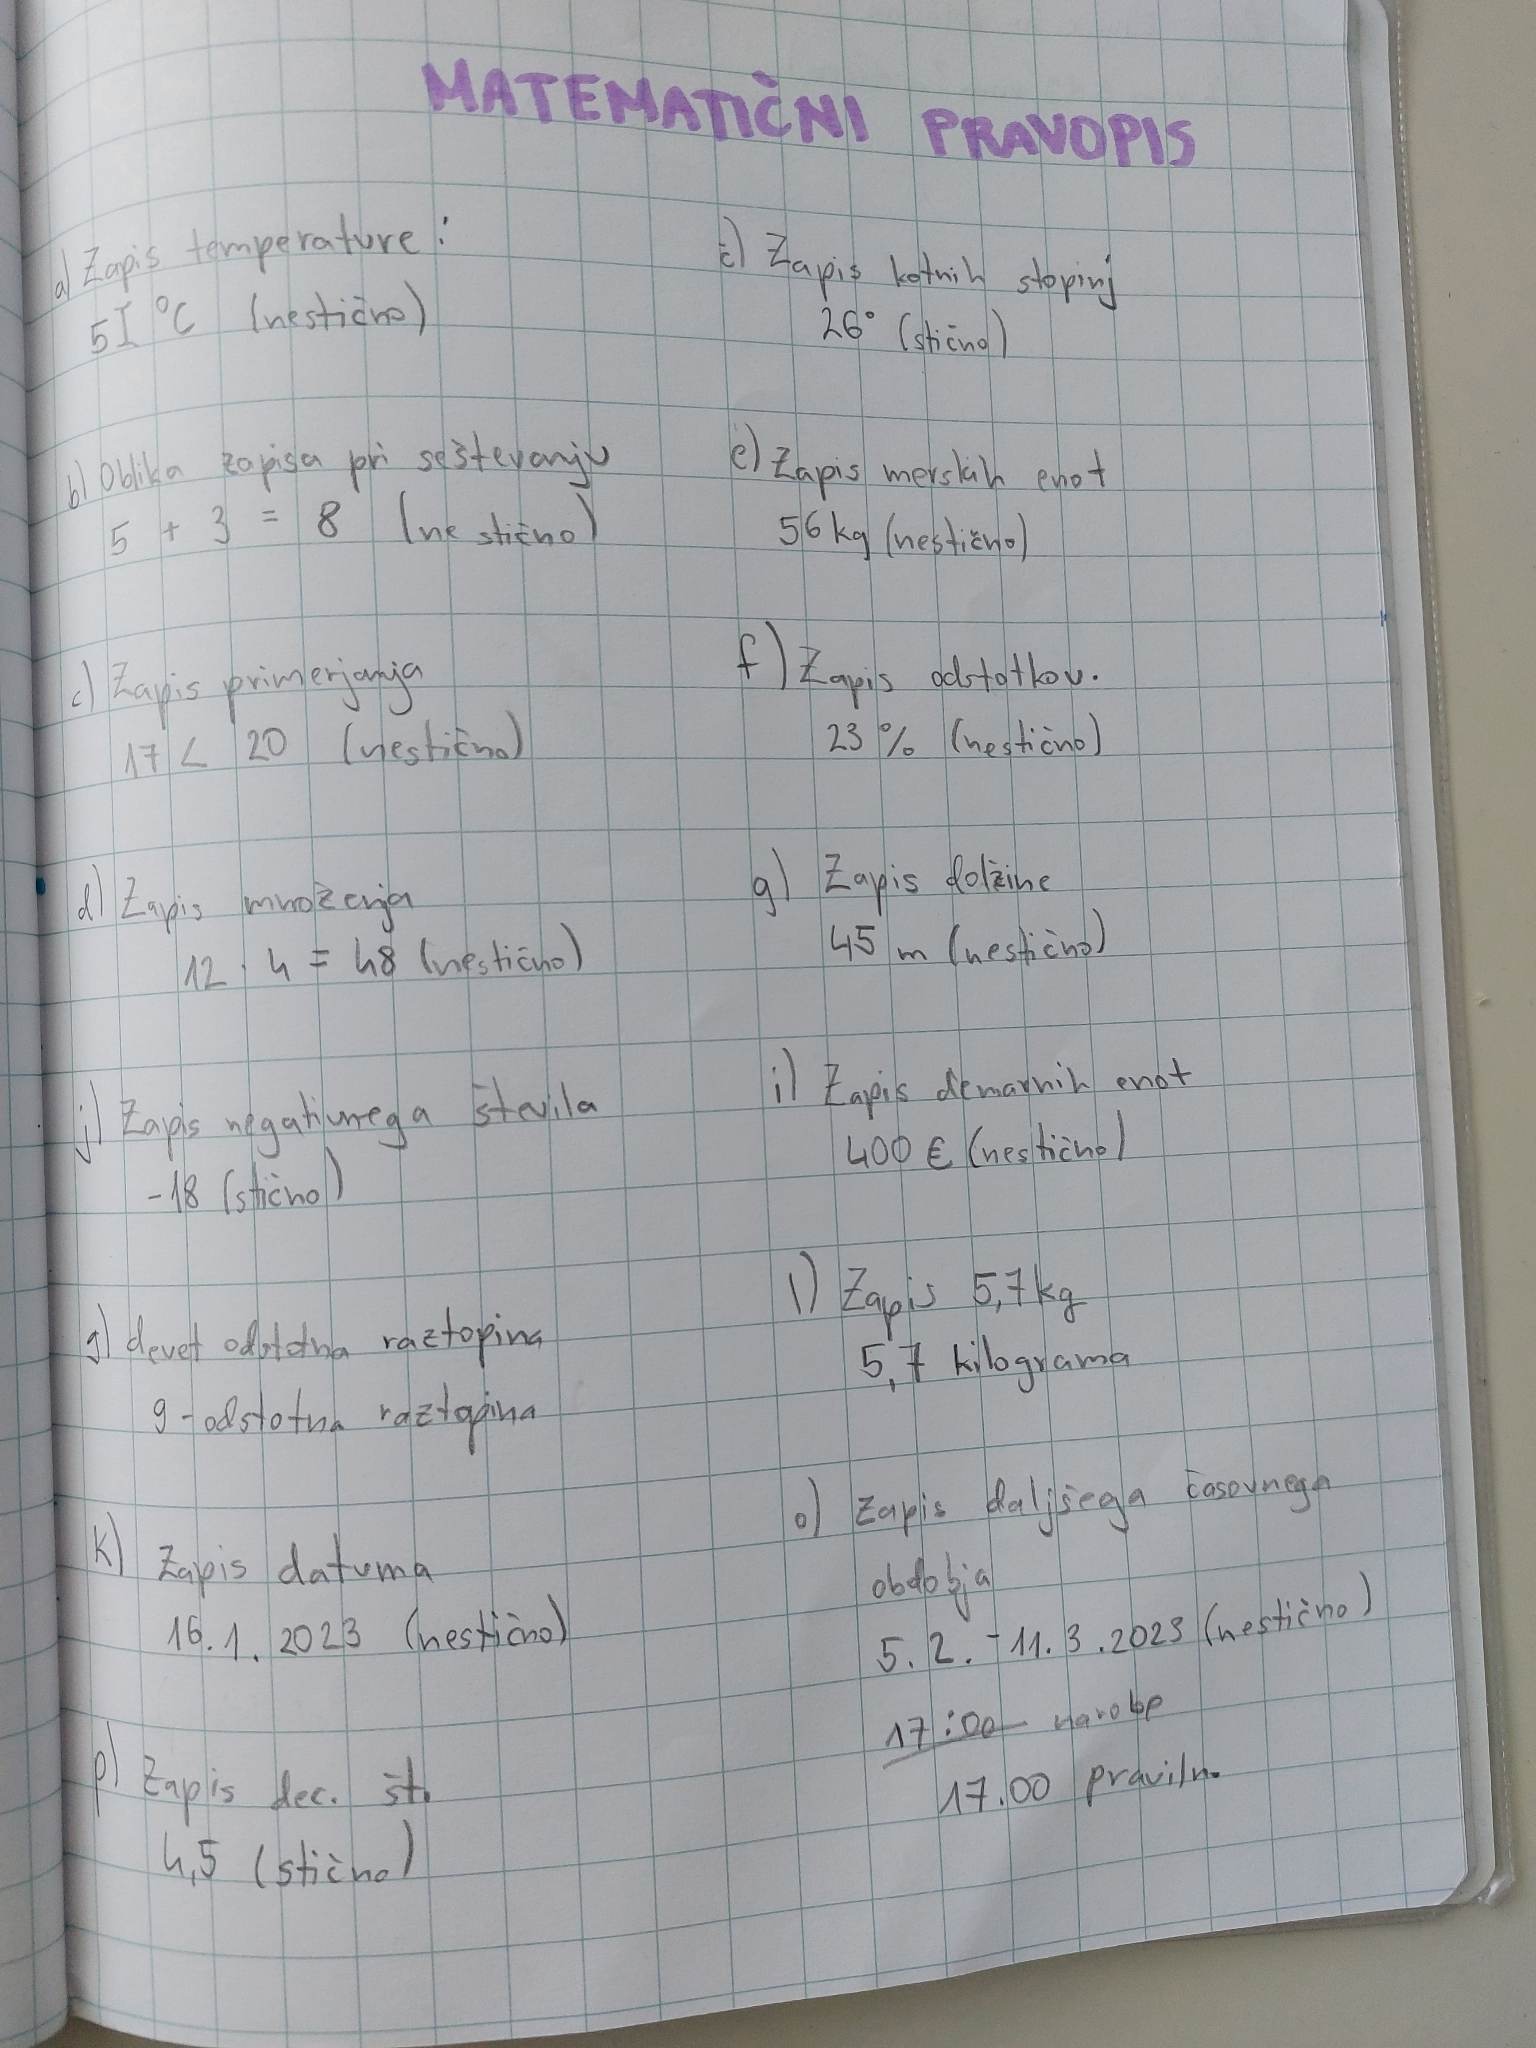 MATEMATIČNI PRAVOPIS
a) Zapis temperature:
5 °C (nestično)
b) Oblika zapisa pri seštevanju
5 + 3 = 8 (nestično)
c) Zapis primerjanja
17 < 20 (nestično)
d) Zapis množenja
12 · 4 = 48 (nestično)
j) Zapis negativnega števila
-18 (stično)
g) devet odstotna raztopina
9-odstotna raztopina
k) Zapis datuma
16. 1. 2023 (nestično)
p) Zapis dec. št.
4,5 (stično)
č) Zapis kotnih stopinj
26° (stično)
e) Zapis merskih enot
56 kg (nestično)
f) Zapis odstotkov.
23 % (nestično)
g) Zapis dolžine
45 m (nestično)
i) Zapis denarnih enot
400 € (nestično)
l) Zapis 5,7 kg
5,7 kilograma
o) Zapis daljšega časovnega
obdobja
5. 2. - 11. 3. 2023 (nestično)
17:00 narobe
17.00 pravilno